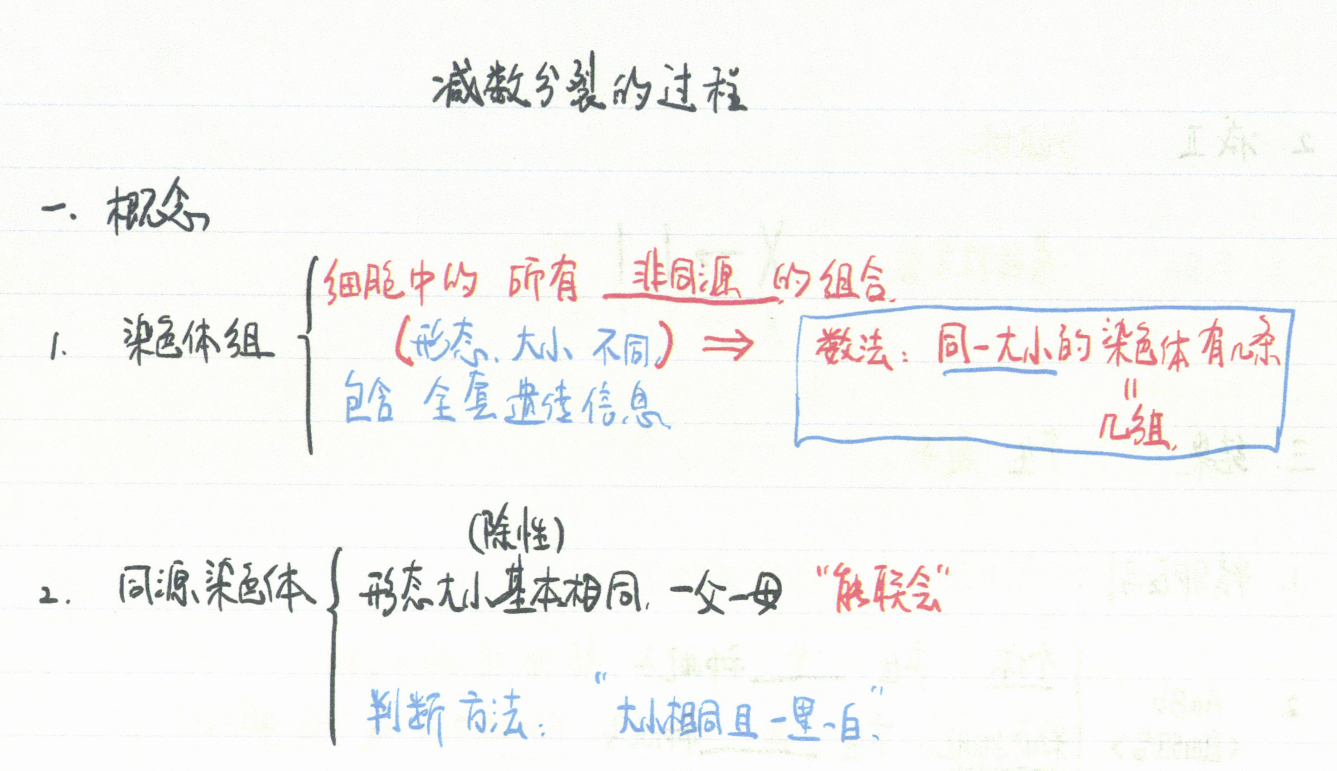 减数分裂的过程
一. 概念
细胞中的 所有 非同源 的组合.
1. 染色体组
(形态、大小 不同) ⇒
数法: 同一大小的染色体有几条
包含 全套遗传信息.
=
几组.
(除性)
2. 同源染色体
形态大小基本相同, 一父一母 "能联会"
判断方法: "大小相同且一黑一白"